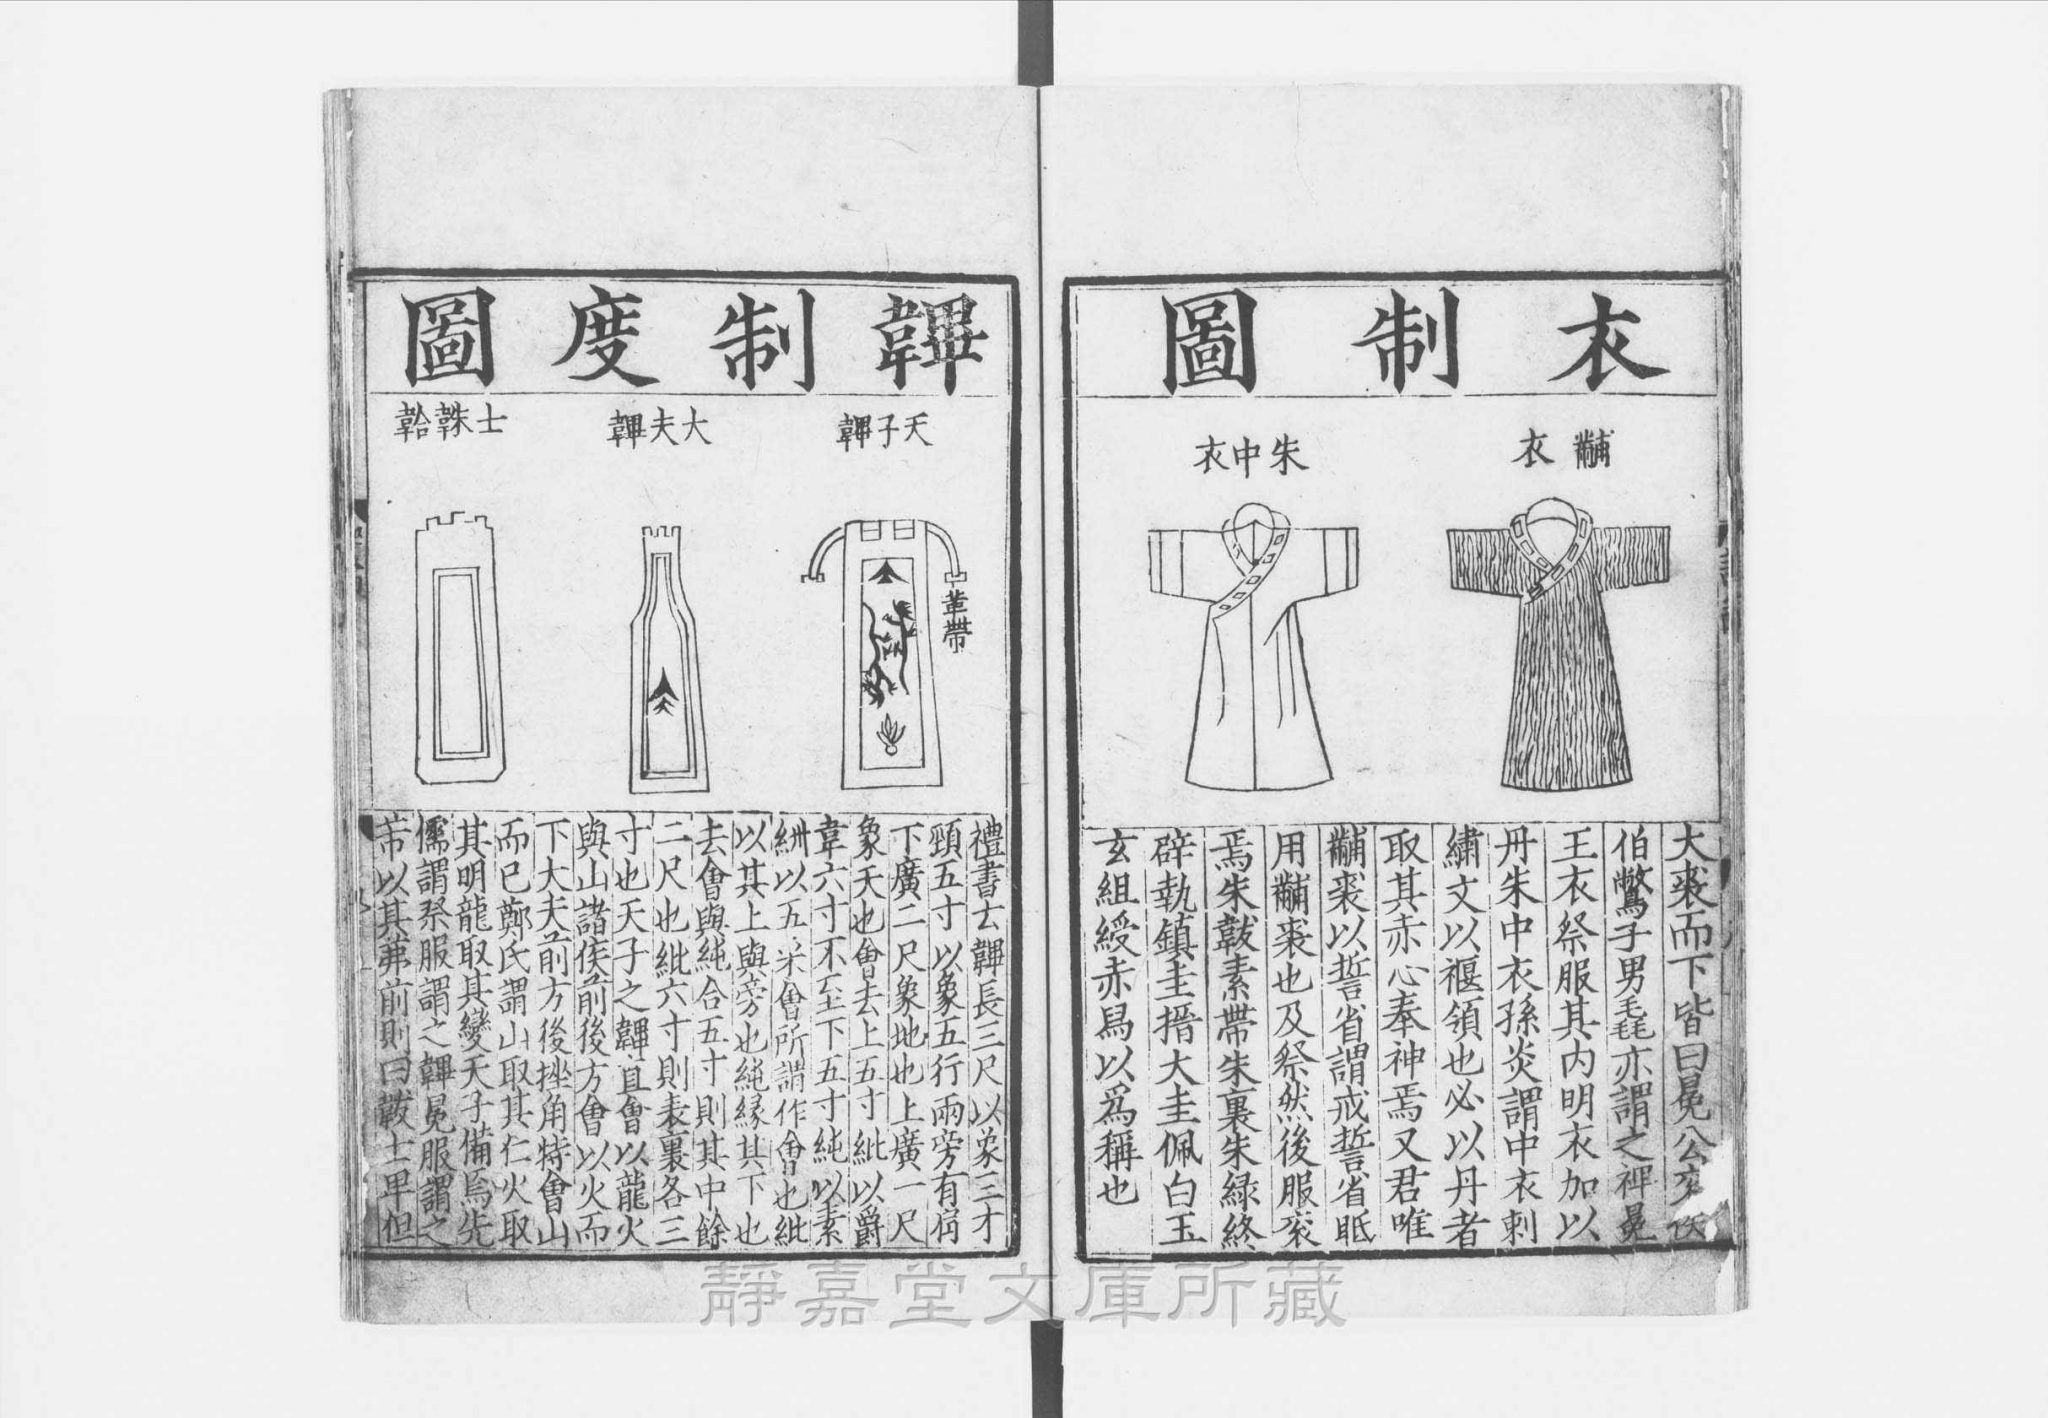 衣制圖
黼衣
朱中衣
大裘而下皆曰冕公
伯鷩子男毳亦謂之裨冕
王衣祭服其内明衣加以
丹朱中衣孫炎謂中衣刺
繡文以褗領也必以丹者
取其赤心奉神焉又君唯
黼裘以誓省謂戒誓省眂
用黼裘也及祭然後服衮
焉朱韍素帶朱裏朱緑終
辟執鎮圭搢大圭佩白玉
玄組綬赤舄以爲稱也
韠制度圖
天子韠
革帶
大夫韠
士韎韐
禮書云韠長三尺以象三才
頸五寸以象五行兩旁有肩
下廣二尺象地也上廣一尺
象天也會去上五寸紕以爵
韋六寸不至下五寸純以素
紃以五采會所謂作會也紕
以其上與旁也純緣其下也
去會與純合五寸則其中餘
二尺也紕六寸則表裏各三
寸也天子之韠直會以龍火
與山諸侯前後方會以火而
下大夫前方後挫角特會山
而已鄭氏謂山取其仁火取
其明龍取其變天子備焉先
儒謂祭服謂之韠冕服謂之
芾以其茀前則曰韍士卑但
靜嘉堂文庫所藏